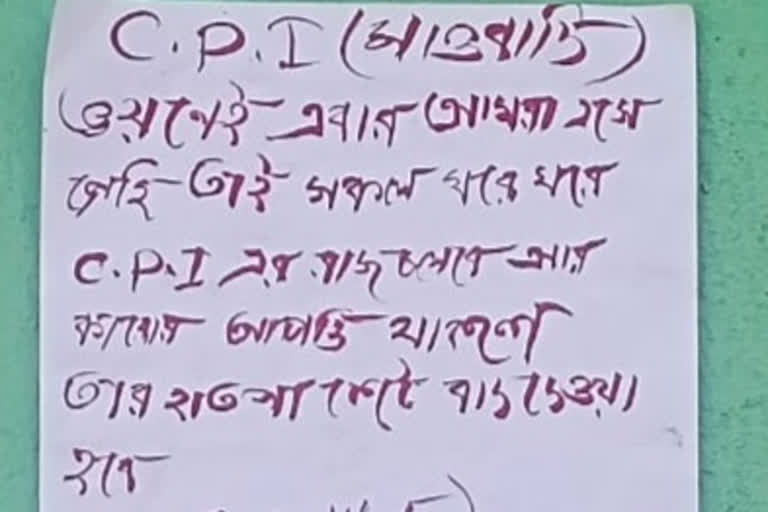 C.P.I (মাওবাদি)
ভয় নেই এবার আমরা এসে
গেছি তাই সকল ঘরে ঘরে
C.P.I এর রাজ চলবে আর
কারোর আপত্তি থাকলে
তার হাত পা কেটে বাদ দেওয়া
হবে